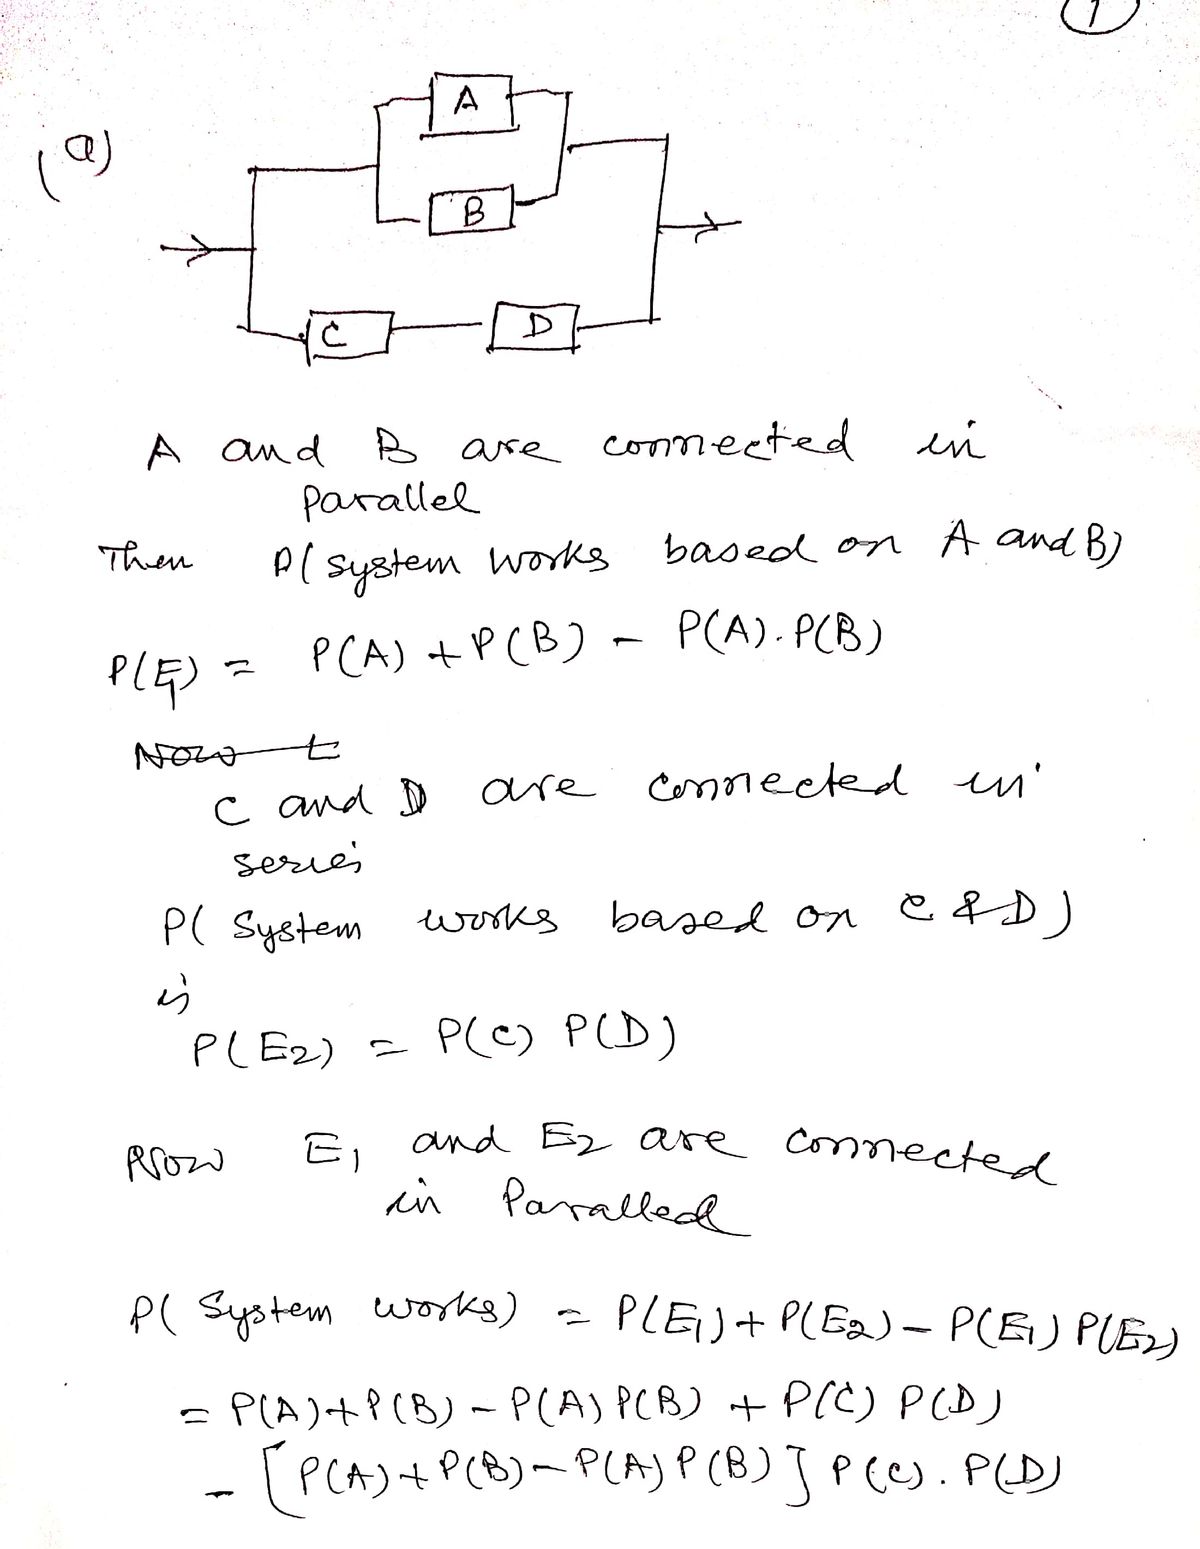 1
(a)
A
B
C
D
A and B are connected in
parallel
Then P(System works based on A and B)
P(E1) = P(A) + P(B) - P(A). P(B)
Now t
C and D are connected in
series
P( System works based on C & D)
is
P(E2) = P(C) P(D)
Now E1 and E2 are connected
in Paralled
P( System works) = P(E1) + P(E2) - P(E1) P(E2)
= P(A) + P(B) - P(A) P(B) + P(C) P(D)
- [P(A) + P(B) - P(A) P(B)] P(C). P(D)